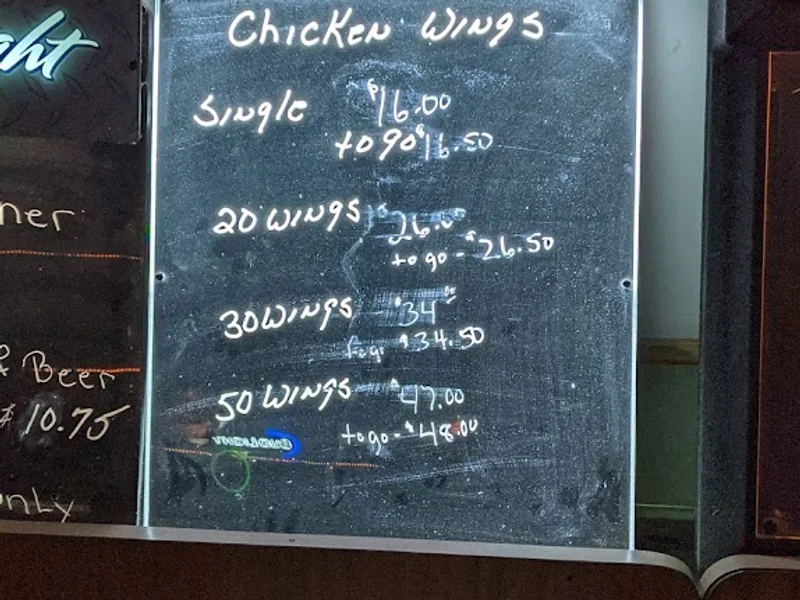 ght
ner
& Beer
$ 10.75
only
Chicken Wings
Single $16.00
to go $16.50
20 Wings - $26.00
to go - $26.50
30 Wings - $34.00
to go $34.50
50 Wings - $47.00
to go - $48.00